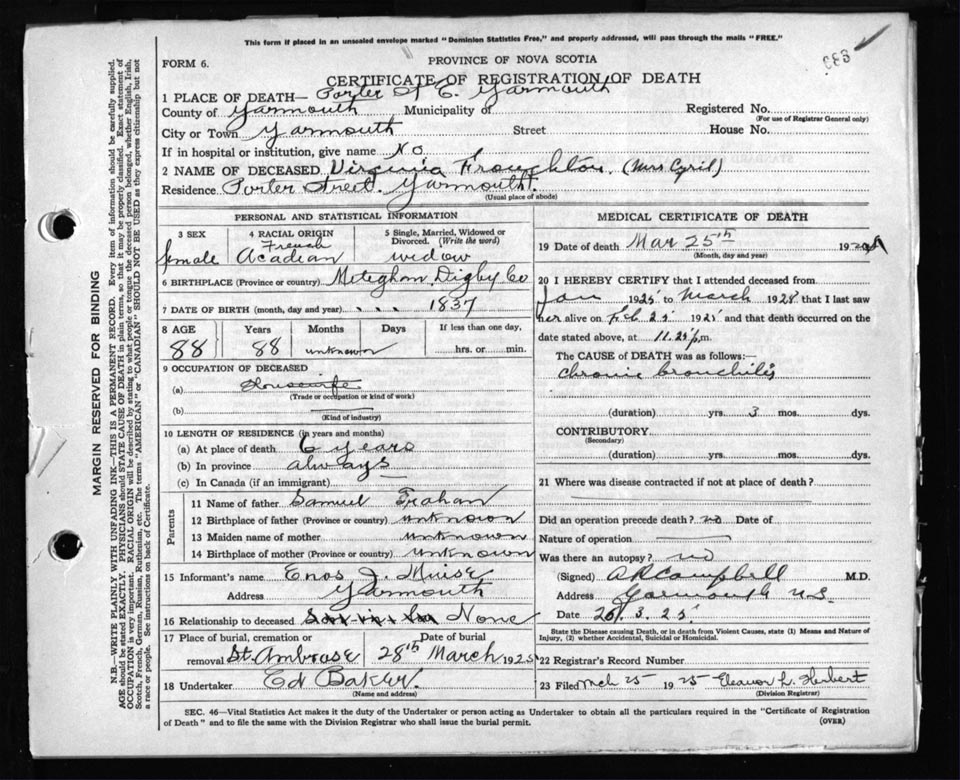 This form if placed in an unsealed envelope marked "Dominion Statistics Free," and properly addressed, will pass through the mails "FREE."
FORM 6.
PROVINCE OF NOVA SCOTIA
CERTIFICATE OF REGISTRATION OF DEATH
1 PLACE OF DEATH— Porter St E. Yarmouth
County of Yarmouth Municipality of Registered No.
(For use of Registrar General only)
City or Town Yarmouth Street House No.
If in hospital or institution, give name No
2 NAME OF DECEASED Virginia (Mrs Cyril)
Residence Porter Street. Yarmouth.
(Usual place of abode)
PERSONAL AND STATISTICAL INFORMATION
3 SEX
female
4 RACIAL ORIGIN
French
Acadian
5 Single, Married, Widowed or
Divorced. (Write the word)
widow
6 BIRTHPLACE (Province or country) Meteghan Digby Co
7 DATE OF BIRTH (month, day and year) . . . 1837
8 AGE Years Months Days If less than one day,
88 88 unknown hrs. or min.
9 OCCUPATION OF DECEASED
(a) Housewife
(Trade or occupation or kind of work)
(b)
(Kind of industry)
10 LENGTH OF RESIDENCE (in years and months)
(a) At place of death 6 years
(b) In province always
(c) In Canada (if an immigrant)
Parents
11 Name of father Samuel Trahan
12 Birthplace of father (Province or country) unknown
13 Maiden name of mother unknown
14 Birthplace of mother (Province or country) unknown
15 Informant's name Enos J. Muise
Address Yarmouth
16 Relationship to deceased Son in law None
17 Place of burial, cremation or
removal St. Ambrose
Date of burial
28th March 1925
18 Undertaker Ed Baker.
(Name and address)
MEDICAL CERTIFICATE OF DEATH
19 Date of death Mar 25th 19
(Month, day and year)
20 I HEREBY CERTIFY that I attended deceased from
Jan 1925 to March 1925 that I last saw
her alive on Feb. 25 1925 and that death occurred on the
date stated above, at 11.25 p.m.
The CAUSE of DEATH was as follows:—
Chronic bronchitis
(duration) yrs. 3 mos. dys.
CONTRIBUTORY
(Secondary)
(duration) yrs. mos. dys.
21 Where was disease contracted if not at place of death?
Did an operation precede death? no Date of
Nature of operation
Was there an autopsy? no
(Signed) A R Campbell M.D.
Address Yarmouth N.S.
Date 26.3.25
State the Disease causing Death, or in death from Violent Causes, state (1) Means and Nature of
Injury, (2) whether Accidental, Suicidal or Homicidal.
22 Registrar's Record Number
23 Filed Mch 25 1925 Eleanor L. Herbert
(Division Registrar)
SEC. 46—Vital Statistics Act makes it the duty of the Undertaker or person acting as Undertaker to obtain all the particulars required in the "Certificate of Registration
of Death" and to file the same with the Division Registrar who shall issue the burial permit.
(OVER)
MARGIN RESERVED FOR BINDING
N.B.—WRITE PLAINLY WITH UNFADING INK—THIS IS A PERMANENT RECORD. Every item of information should be carefully supplied.
AGE should be stated EXACTLY. PHYSICIANS should STATE CAUSE OF DEATH in plain terms, so that it may be properly classified. Exact statement of
OCCUPATION is very important. RACIAL ORIGIN will be described by stating to what people or tongue the deceased person belonged, whether English, Irish,
Scotch, French, German, Russian, Ruthenian, etc. The terms "AMERICAN" or "CANADIAN" SHOULD NOT BE USED as they express citizenship but not
a race or people. See instructions on back of Certificate.